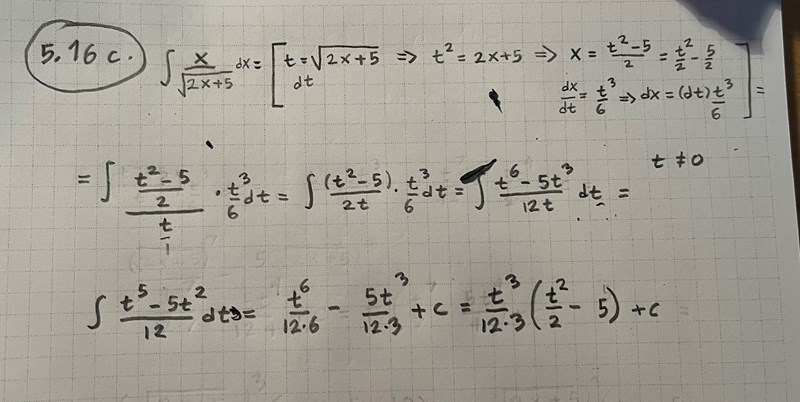 5.16 c. ∫ x/√(2x+5) dx = [ t = √(2x+5) ⇒ t² = 2x+5 ⇒ x = (t²-5)/2 = t²/2 - 5/2
dt dx/dt = t³/6 ⇒ dx = (dt) t³/6 ] =
= ∫ ((t²-5)/2)/(t/1) · t³/6 dt = ∫ (t²-5)/2t · t³/6 dt = ∫ (t⁶-5t³)/12t dt = t ≠ 0
∫ (t⁵-5t²)/12 dt = t⁶/(12·6) - 5t³/(12·3) + c = t³/(12·3) (t²/2 - 5) + c